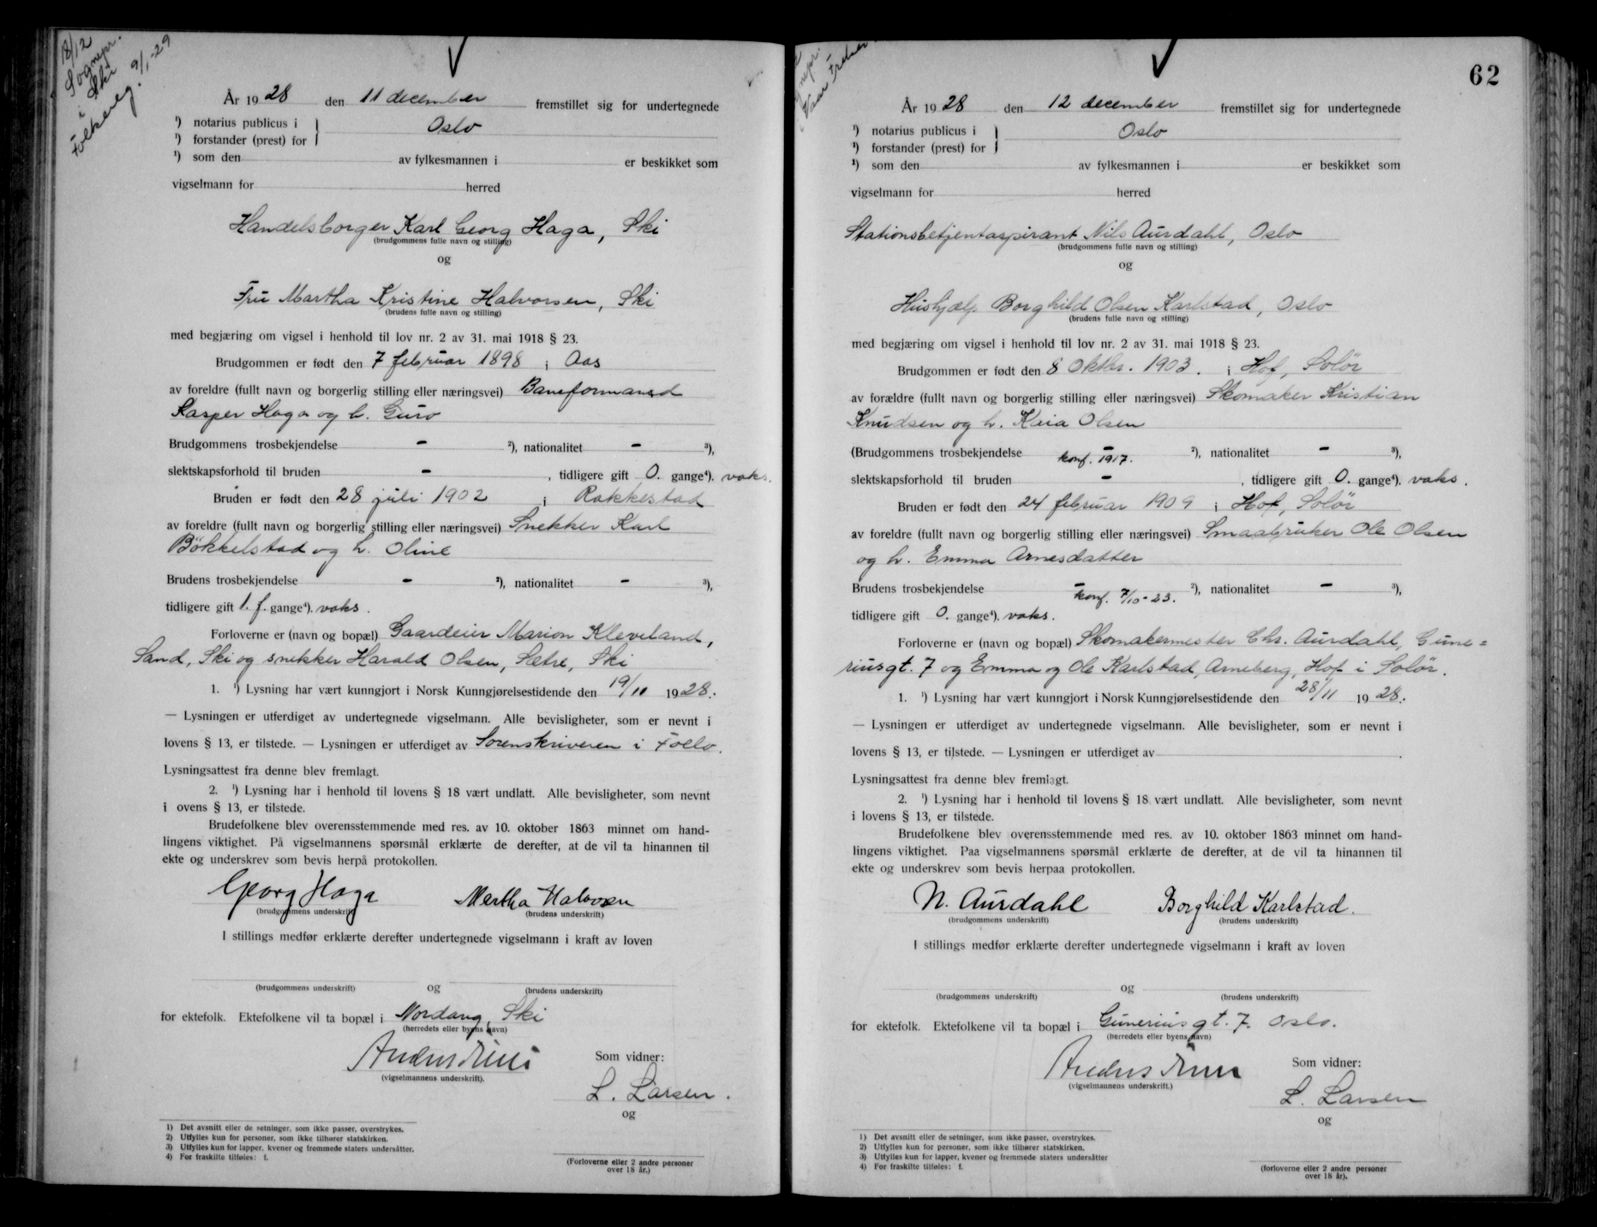 18/12
Sognepr.
i Ski
Folkereg. 9/1-29
År 1928 den 11 december fremstillet sig for undertegnede
¹) notarius publicus i } Oslo
¹) forstander (prest) for
¹) som den av fylkesmannen i er beskikket som
vigselmann for herred
Handelsborger Karl Georg Haga, Ski
(brudgommens fulle navn og stilling)
og
Fru Martha Kristine Halvorsen, Ski
(brudens fulle navn og stilling)
med begjæring om vigsel i henhold til lov nr. 2 av 31. mai 1918 § 23.
Brudgommen er født den 7 februar 1898 i Aas
av foreldre (fullt navn og borgerlig stilling eller næringsvei) Baneformand
Kasper Haga og h. Guro
Brudgommens trosbekjendelse - ²), nationalitet - ³),
slektskapsforhold til bruden - , tidligere gift 0. gange⁴). vaks.
Bruden er født den 28 juli 1902 i Rakkestad
av foreldre (fullt navn og borgerlig stilling eller næringsvei) Snekker Karl
Bökkelstad og h. Oline
Brudens trosbekjendelse - ²), nationalitet - ³),
tidligere gift 1. f. gange⁴). vaks.
Forloverne er (navn og bopæl) Gaardeier Marion Kleveland,
Sand, Ski og snekker Harald Olsen, Sætre, Ski
1. ¹) Lysning har vært kunngjort i Norsk Kunngjørelsestidende den 19/11 1928.
— Lysningen er utferdiget av undertegnede vigselmann. Alle bevisligheter, som er nevnt i
lovens § 13, er tilstede. — Lysningen er utferdiget av Sorenskriveren i Follo.
Lysningsattest fra denne blev fremlagt.
2. ¹) Lysning har i henhold til lovens § 18 vært undlatt. Alle bevisligheter, som nevnt
i ovens § 13, er tilstede.
Brudefolkene blev overensstemmende med res. av 10. oktober 1863 minnet om hand-
lingens viktighet. På vigselmannens spørsmål erklærte de derefter, at de vil ta hinannen til
ekte og underskrev som bevis herpå protokollen.
Georg Haga Martha Halvorsen
(brudgommens underskrift) (brudens underskrift)
I stillings medfør erklærte derefter undertegnede vigselmann i kraft av loven
og
(brudgommens underskrift) (brudens underskrift)
for ektefolk. Ektefolkene vil ta bopæl i Nordang, Ski
(herredets eller byens navn)
(vigselmannens underskrift).
Som vidner:
L. Larsen.
og
1) Det avsnitt eller de setninger, som ikke passer, overstrykes.
2) Utfylles kun for personer, som ikke tilhører statskirken.
3) Utfylles kun for lapper, kvener og fremmede staters undersåtter.
4) For fraskilte tilføies: f.
(Forloverne eller 2 andre personer
over 18 år.)
62
År 1928 den 12 december fremstillet sig for undertegnede
¹) notarius publicus i } Oslo
¹) forstander (prest) for
¹) som den av fylkesmannen i er beskikket som
vigselmann for herred
Stationsbetjentaspirant Nils Aurdahl, Oslo
(brudgommens fulle navn og stilling)
og
Hushjælp Borghild Olsen Karlstad, Oslo
(brudens fulle navn og stilling)
med begjæring om vigsel i henhold til lov nr. 2 av 31. mai 1918 § 23.
Brudgommen er født den 8 Oktbr. 1903. i Hof, Solör
av forældre (fullt navn og borgerlig stilling eller næringsvei) Skomaker Kristian
Knudsen og h. Kaia Olsen
(Brudgommens trosbekjendelse - konf. 1917. ²), nationalitet - ³),
slektskapsforhold til bruden - , tidligere gift 0. gange⁴). vaks.
Bruden er født den 24 februar 1909 i Hof, Solör
av foreldre (fullt navn og borgerlig stilling eller næringsvei) Smaabruker Ole Olsen
og h. Emma Arnesdatter
Brudens trosbekjendelse - konf. 7/10-23. ²), nationalitet - ³),
tidligere gift 0. gange⁴). vaks.
Forloverne er (navn og bopæl) Skomakermester Chr. Aurdahl, Gune=
riusgt. 7 og Emma og Ole Karlstad, Arneberg, Hof i Solör.
1. ¹) Lysning har vært kunngjort i Norsk Kunngjørelsestidende den 28/11 1928.
— Lysningen er utferdiget av undertegnede vigselmann. Alle bevisligheter, som er nevnt i
lovens § 13, er tilstede. — Lysningen er utferdiget av .
Lysningsattest fra denne blev fremlagt.
2. ¹) Lysning har i henhold til lovens § 18 vært undlatt. Alle bevisligheter, som nevnt
i lovens § 13, er tilstede.
Brudefolkene blev overensstemmende med res. av 10. oktober 1863 minnet om hand-
lingens viktighet. Paa vigselmannens spørsmål erklærte de derefter, at de vil ta hinannen til
ekte og underskrev som bevis herpaa protokollen.
N. Aurdahl Borghild Karlstad.
(brudgommens underskrift) (brudens underskrift)
I stillings medfør erklærte derefter undertegnede vigselmann i kraft av loven
og
(brudgommens underskrift) (brudens underskrift)
for ektefolk. Ektefolkene vil ta bopæl i Guneriusgt. 7. Oslo.
(herredets eller byens navn)
(vigselmannens underskrift.)
Som vidner:
L. Larsen
og
1) Det avsnitt eller de setninger, som ikke passer, overstrykes.
2) Utfylles kun for personer, som ikke tilhører statskirken.
3) Utfylles kun for lapper, kvener og fremmede staters undersåtter
4) For fraskilte tilføies: f.
(forloverne eller 2 andre personer
over 18 år).